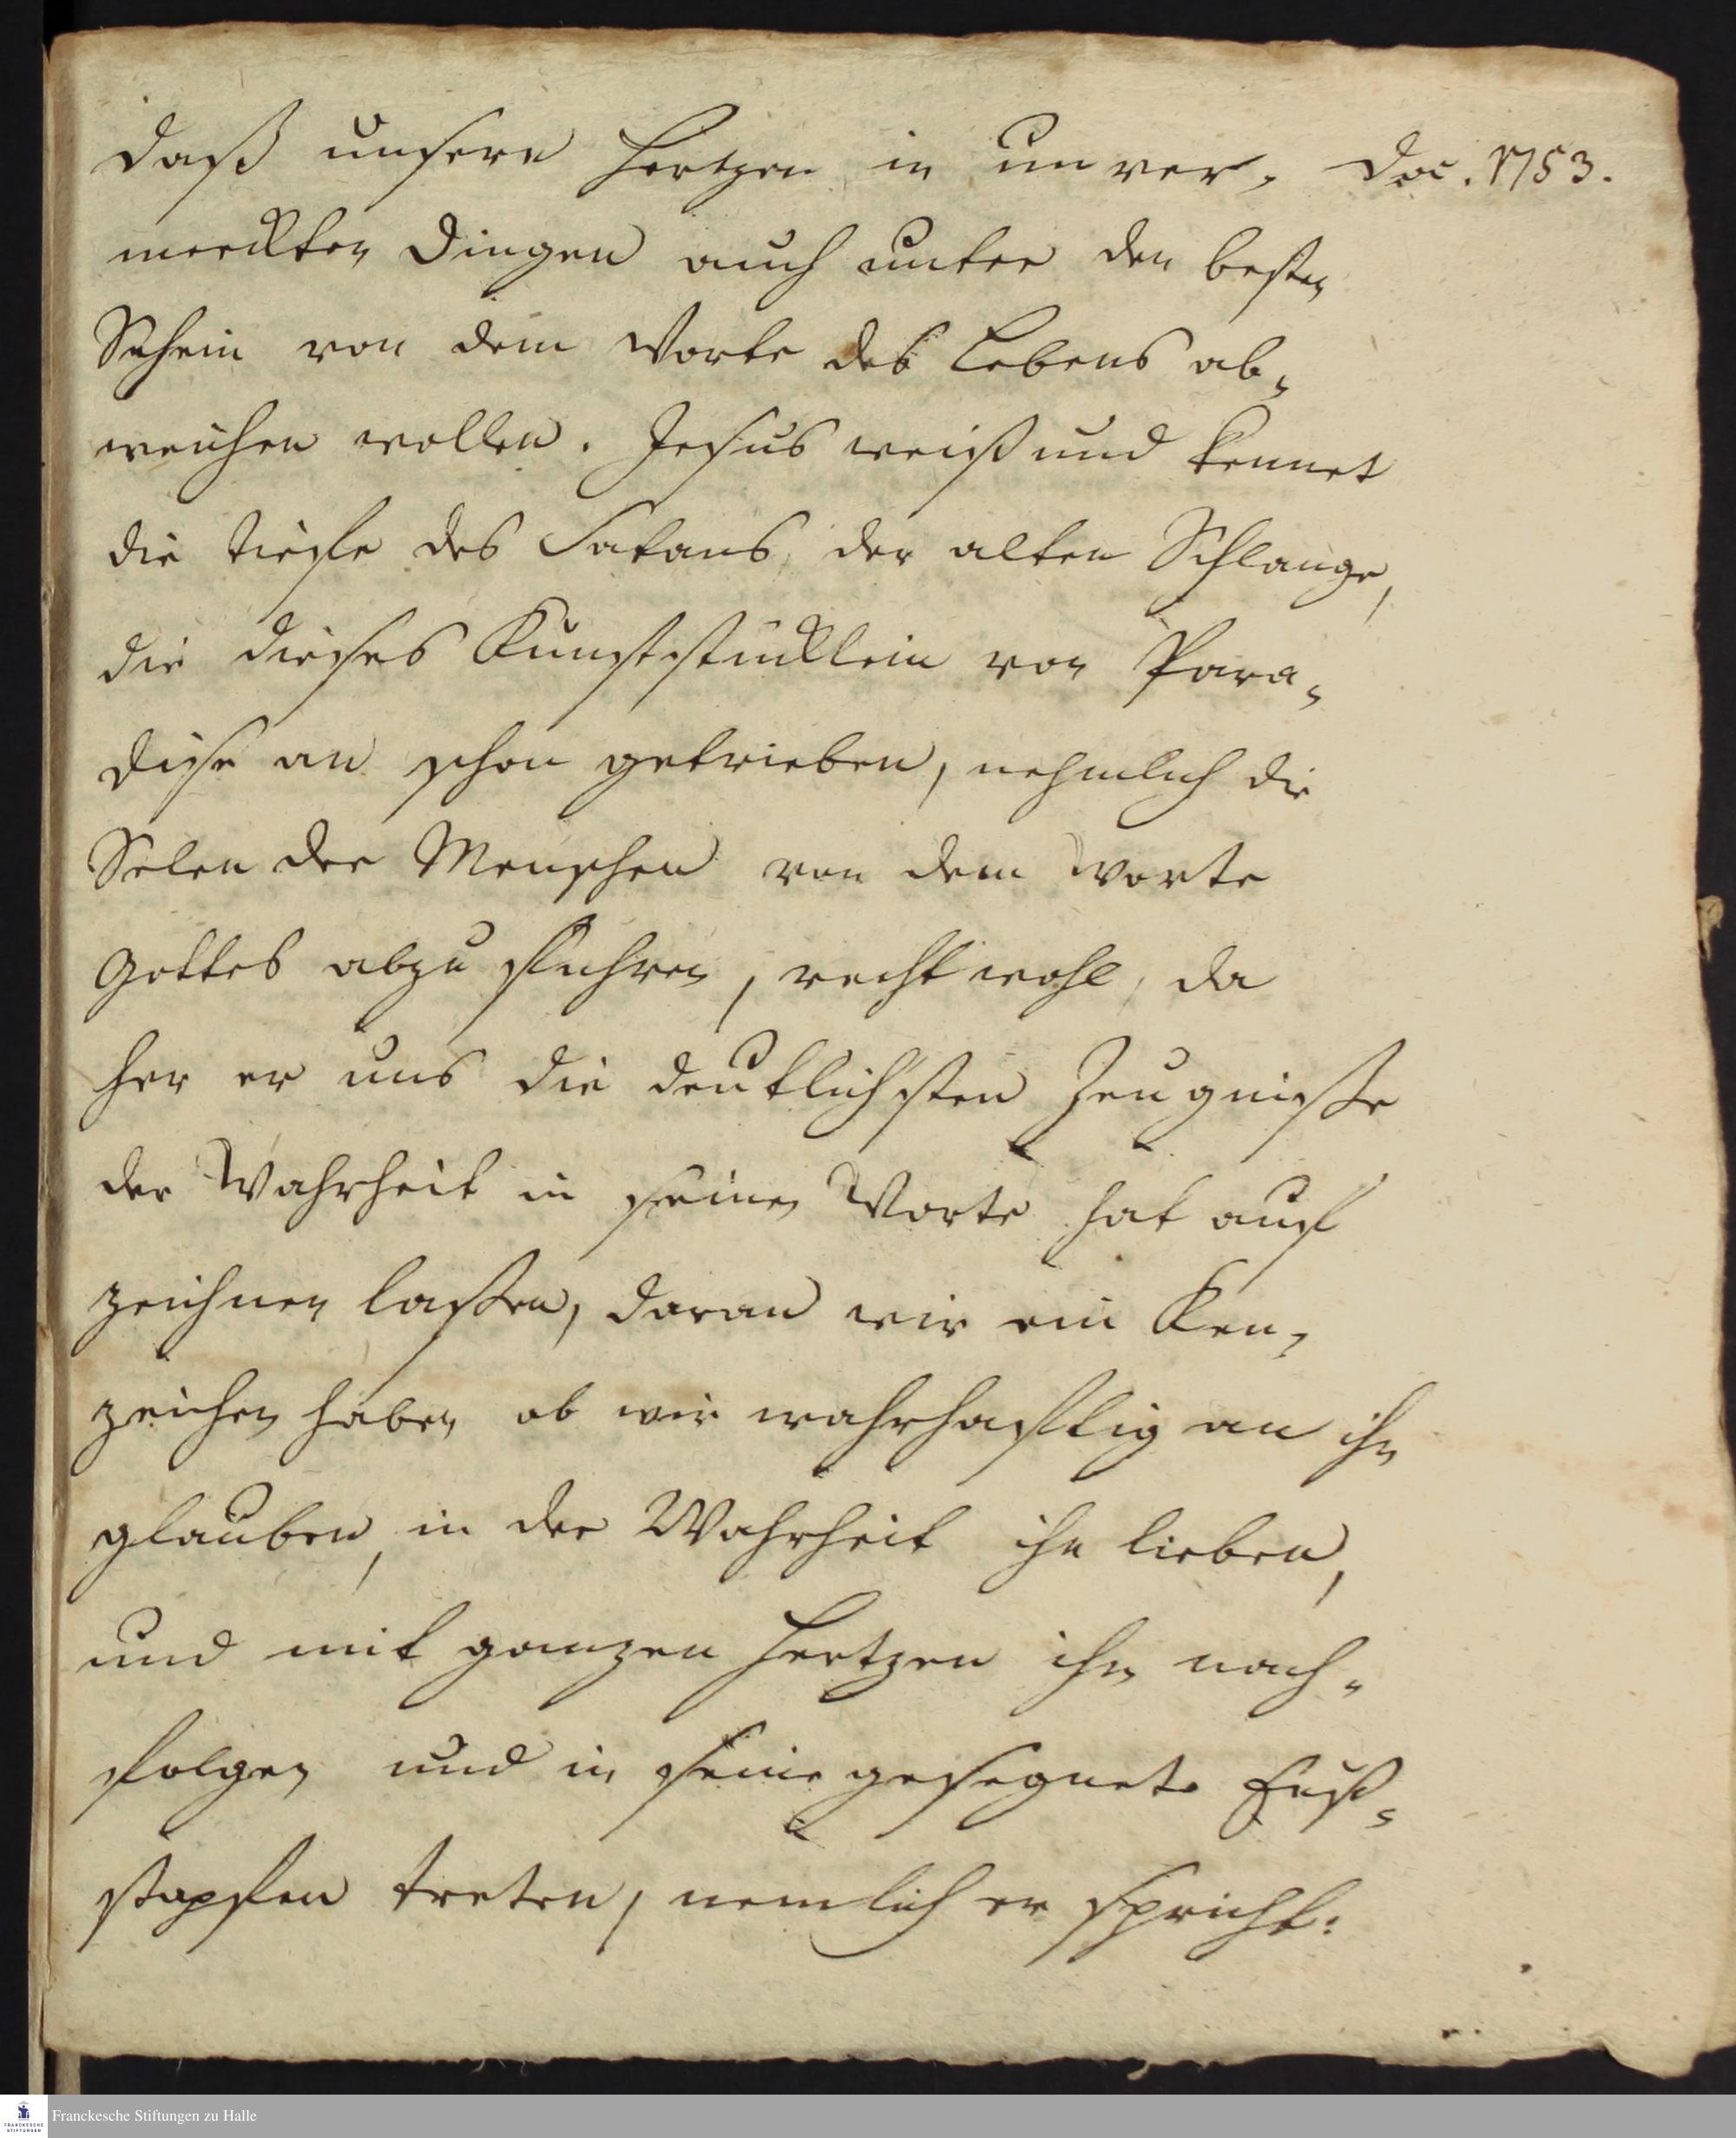 daß unsere Hertzen in unver- Doc. 1753.
merckten Dingen auch unter den besten
Schein von dem Worte des Lebens ab-
weichen wollen. Jesus weiß und kennet
die tiefe des Satans, der alten Schlange,
die dieses Kunst-stücklein von Para-
dise an schon getrieben, nehmlich die
Selen der Menschen von dem Worte
Gottes abzu führen, recht wohl, da
her er uns die deutlichsten Zeugniße
der Wahrheit in seinen Worte hat auf
zeichnen laßen, daran wir ein Ken-
zeichen haben ob wir wahrhafftig an ihn
glauben, in der Wahrheit ihn lieben,
und mit ganzen Hertzen ihm nach-
folgen und in seine gesegnete Fuß-
stapfen treten, nemlich er spricht:
Franckesche Stiftungen zu Halle
FRANCKESCHE
STIFTUNGEN